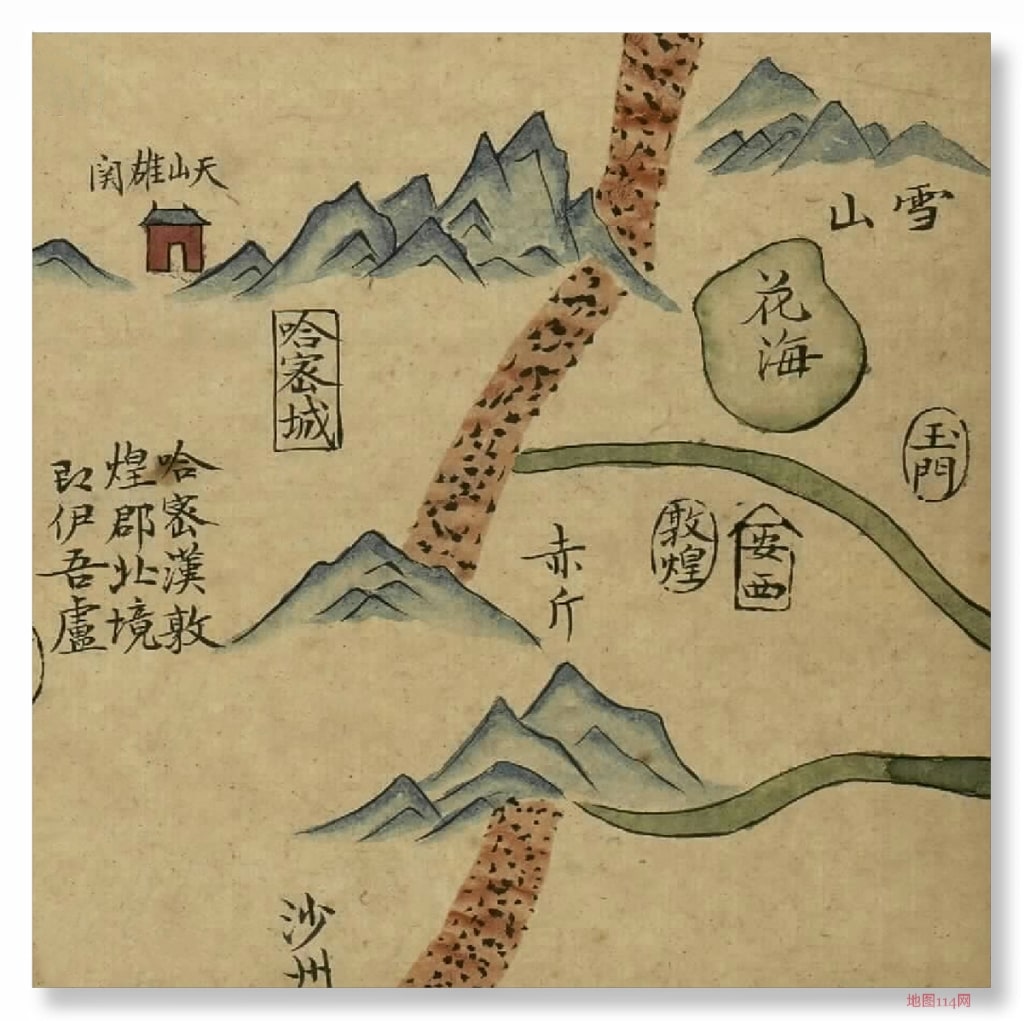 天山雄関
雪山
花海
哈密城
玉門
哈密漢敦
煌郡北境
即伊吾盧
安西
敦煌
赤斤
沙州
地图114网